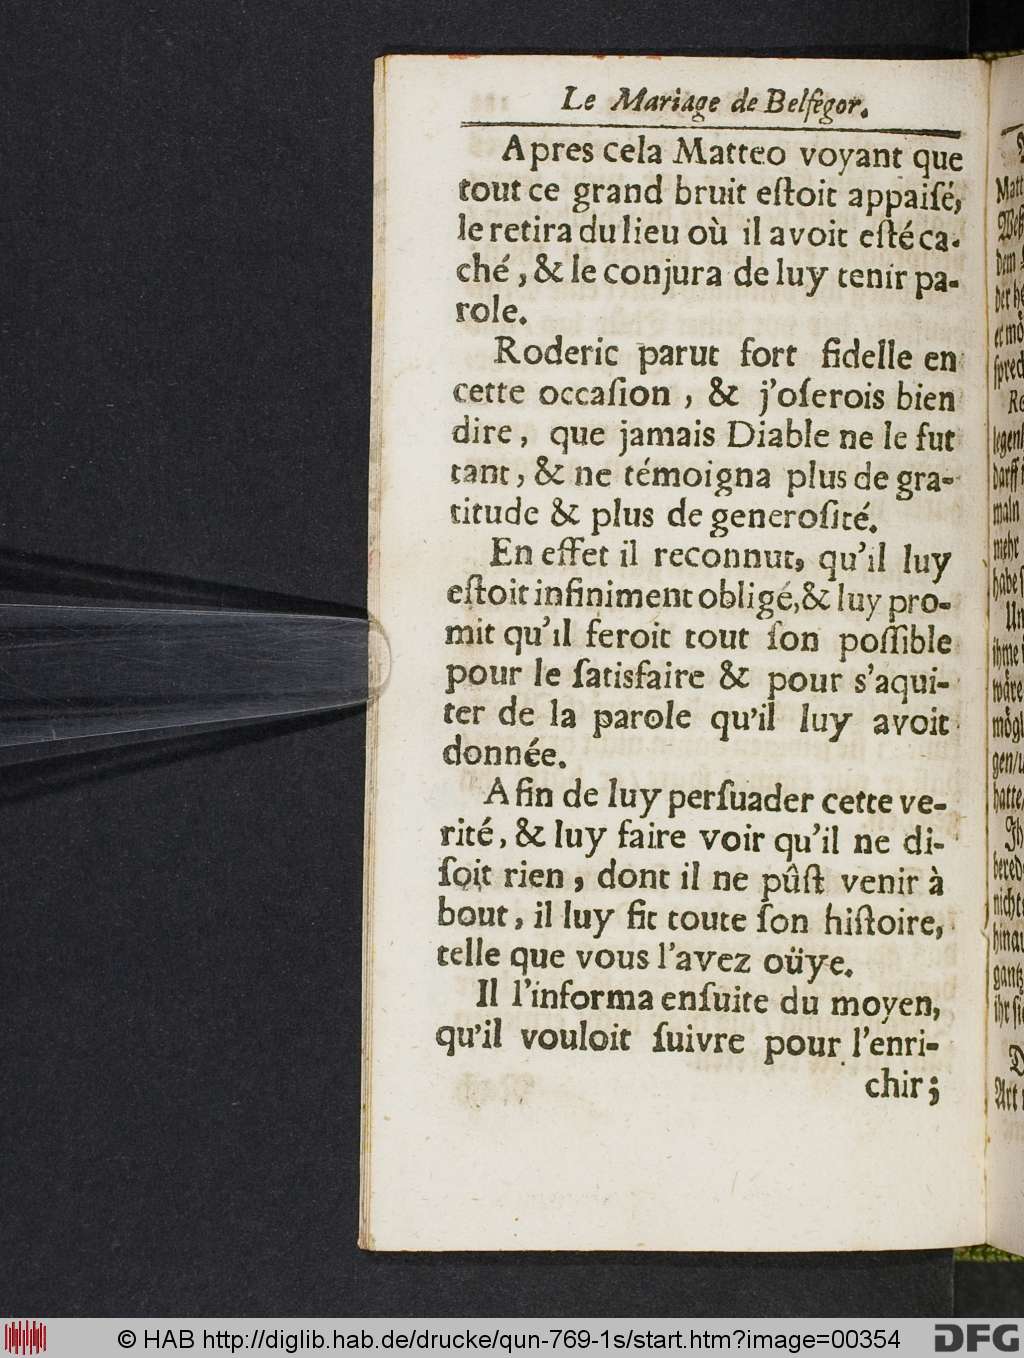 Le Mariage de Belfegor.
Apres cela Matteo voyant que
tout ce grand bruit eſtoit appaiſé,
le retira du lieu où il avoit eſté ca-
ché, & le conjura de luy tenir pa-
role.
Roderic parut fort fidelle en
cette occaſion, & j'oſerois bien
dire, que jamais Diable ne le fut
tant, & ne témoigna plus de gra-
titude & plus de generoſité.
En effet il reconnut, qu'il luy
eſtoit infiniment obligé, & luy pro-
mit qu'il feroit tout ſon poſſible
pour le ſatisfaire & pour s'aqui-
ter de la parole qu'il luy avoit
donnée.
Afin de luy perſuader cette ve-
rité, & luy faire voir qu'il ne di-
ſoit rien, dont il ne pûſt venir à
bout, il luy fit toute ſon hiſtoire,
telle que vous l'avez oüye.
Il l'informa enſuite du moyen,
qu'il vouloit ſuivre pour l'enri-
chir;
Matt
dem
der he
er mö
ſprech
Re
legenh
darff
maln
mehr
habe ſ
Un
ihme
wäre
mögl
gen/u
hatte/
Ih
bered
nicht
hinau
gantz
ihr ſie
D
Art
© HAB http://diglib.hab.de/drucke/qun-769-1s/start.htm?image=00354
DFG